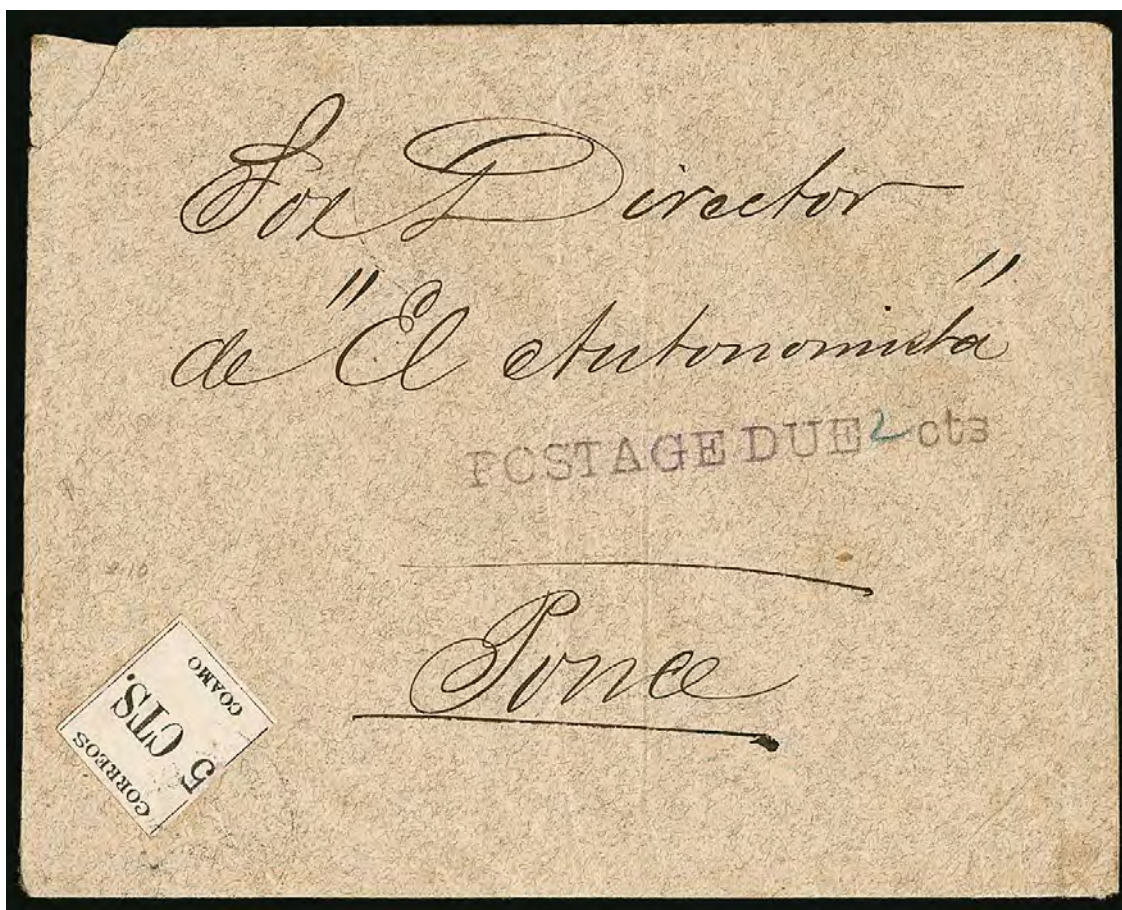 Sor Director
de "El Autonomista"
POSTAGE DUE 2 cts
Ponce
CORREOS
5 CTS.
COAMO